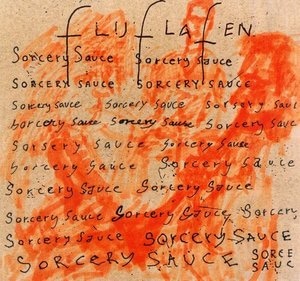 fLUfLAfEN
Sorcery Sauce Sorcery Sauce
Sorcery Sauce Sorcery Sauce
Sorcery Sauce Sorcery Sauce Sorsery Sauce
Sorcery Sauce Sorcery Sauce Sorcery Sauce
Sorsery Sauce Sorcery Sauce
Sorcery Sauce Sorcery Sauce
Sorcery Sauce Sorcery Sauce
Sorcery Sauce Sorcery Sauce Sorcery
Sorcery Sauce Sorcery Sauce
Sorcery Sauce SORCE
SAUC